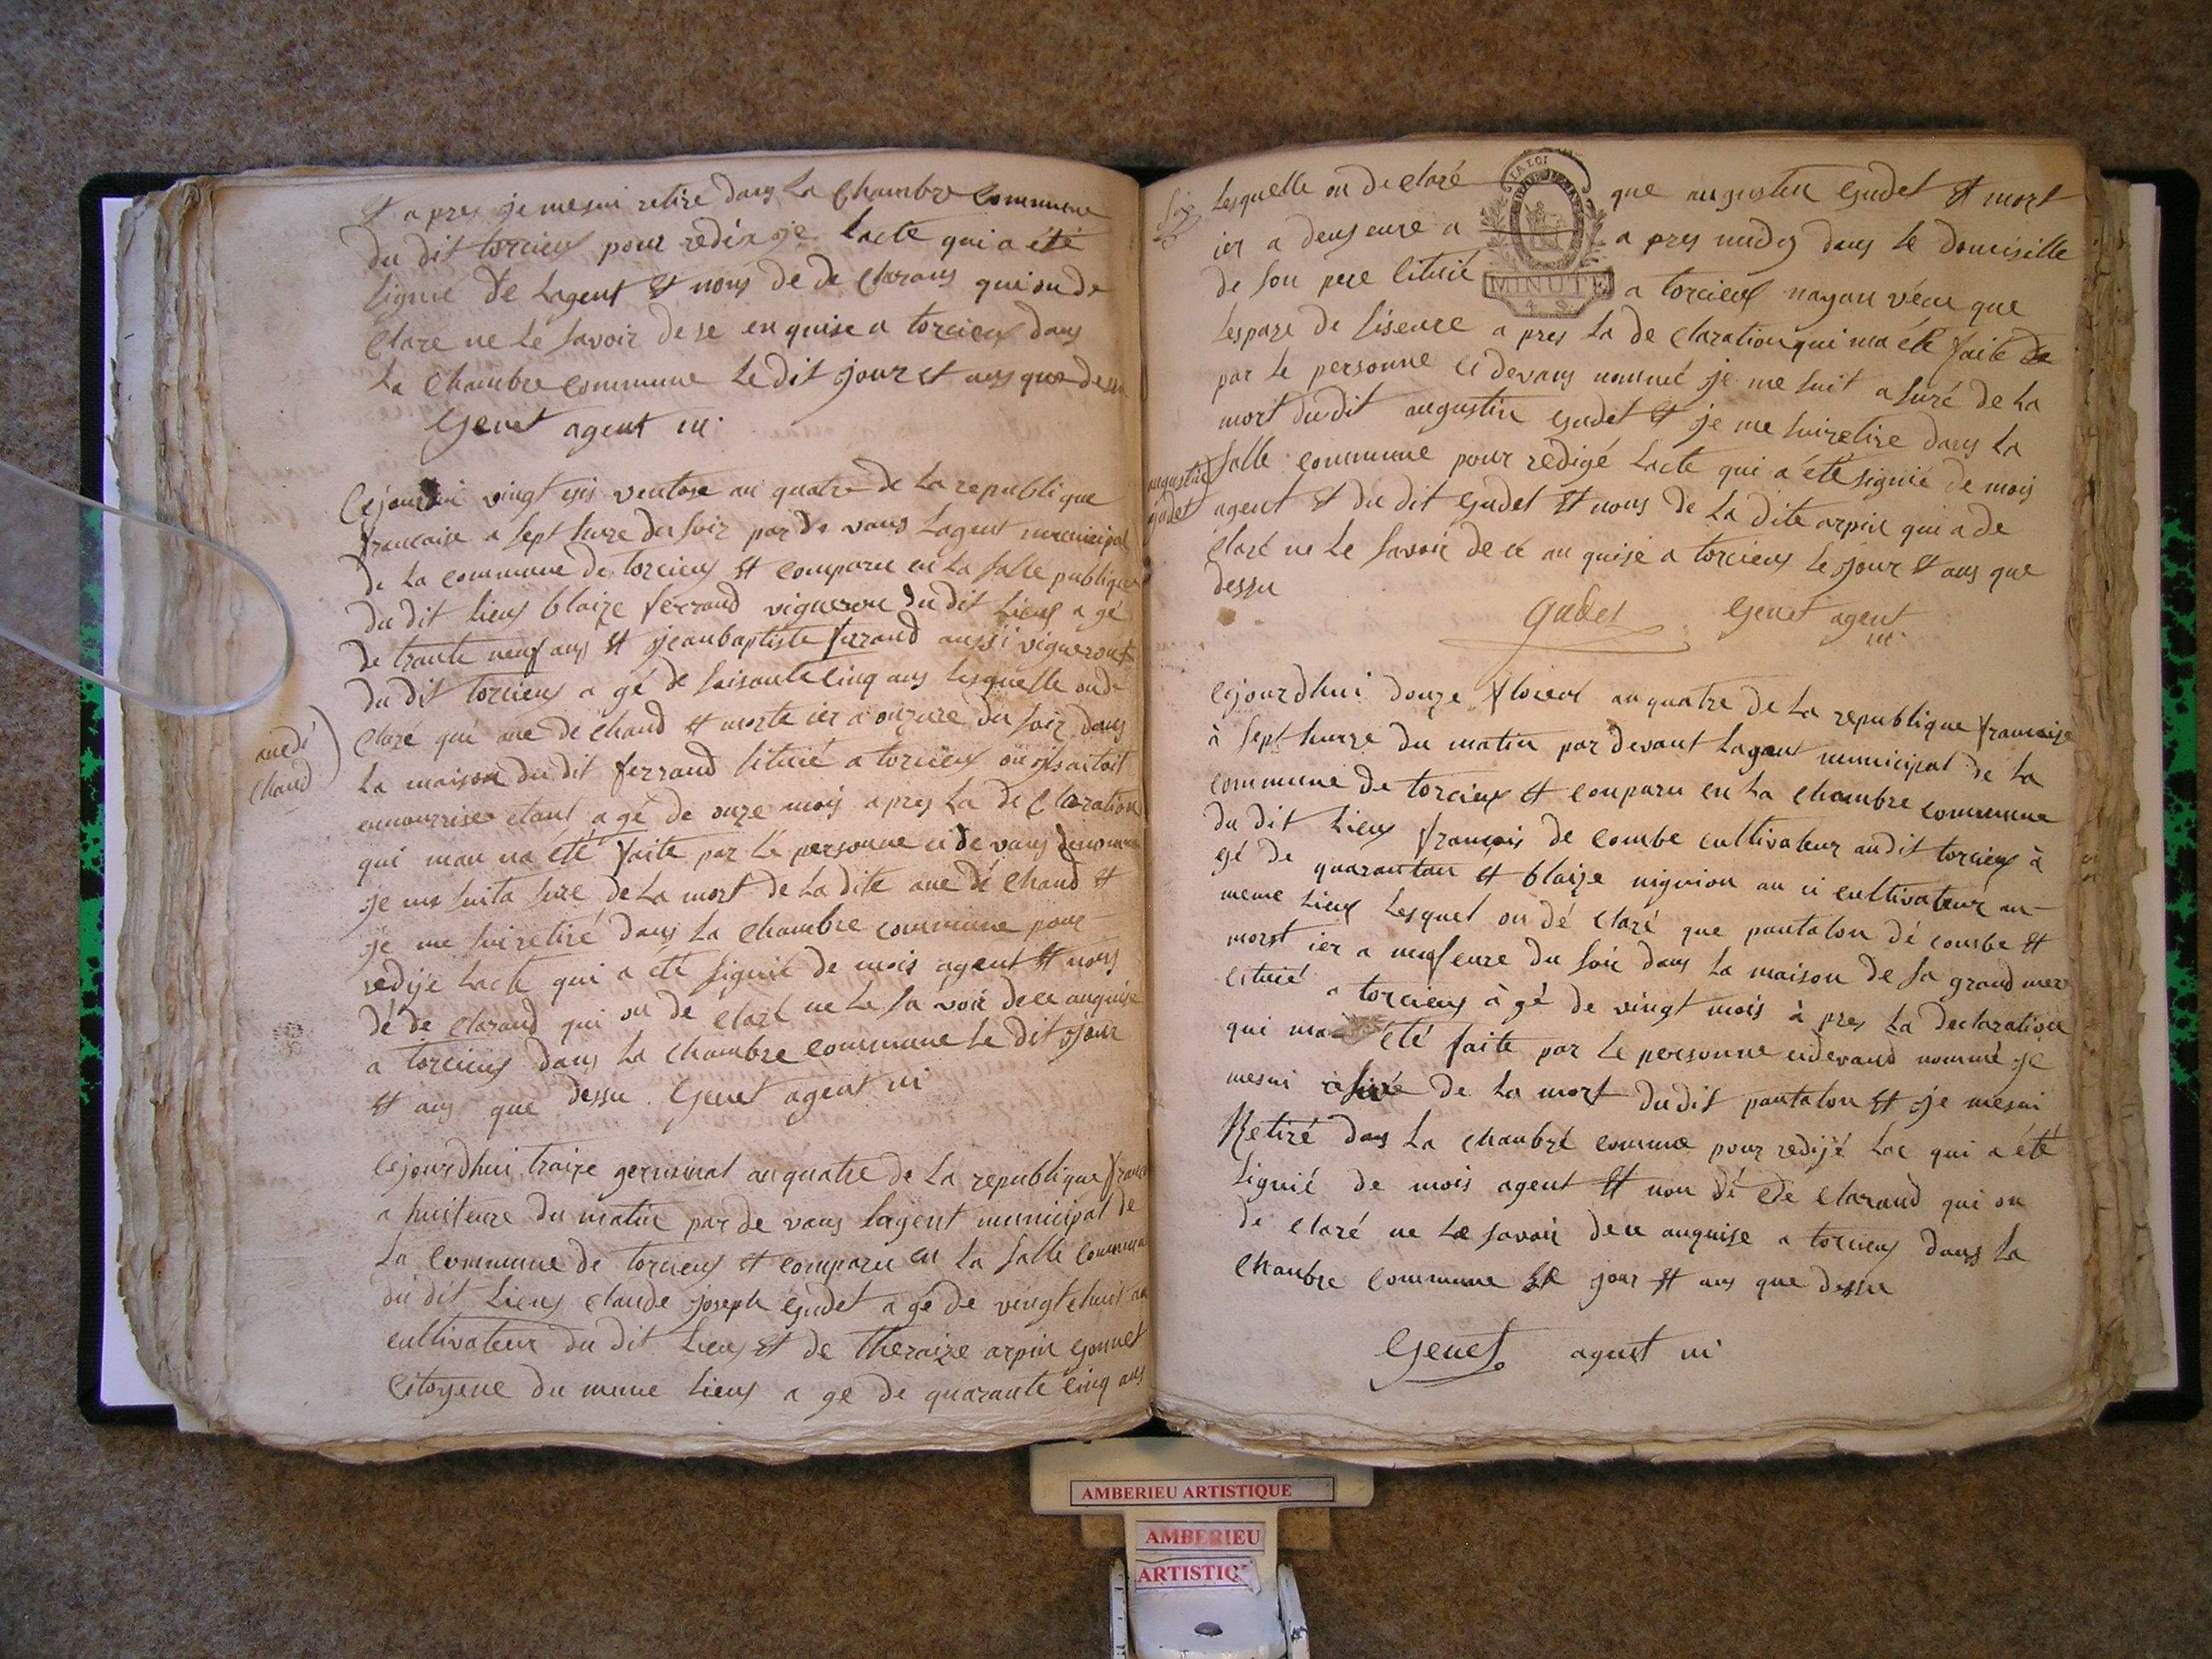 Et apres je mesui retire dans La Chambre Commune
du dit torcieu pour redixge Lacte qui a été
signié de Lagent Et nons de de Clarans qui on de
Clare ne Le savoir de se enquise a torcieu dans
La Chambre commune Le dit jour Et ans que dessu
Genet agent m
Cejourdui vingt sis ventose an quatre de La republique
francaise a sept hure du soir par de vans Lagent municipal
de La commune de torcieu Et comparu en La salle publique
du dit Lieus blaize ferrand vigneron du dit Lieus a gé
de trante neuf ans Et jeanbaptiste ferrand aussi vigneront
du dit torcieu a gé de soisante cinq ans Lesquelle on de
Claré que ane dé chaud Et morte ier a onzeure du soir dans
ane dé
chaud
La maison du dit ferrand situié a torcieu
ennourrise etant a gé de onze mois apres La de Claration
qui man na été faite par Le personne ci de vans
je me suit a sure de La mort de La dite ane dé chaud Et
je me suiretiré dans La chambre commune pour
redije Lacte qui a été signié de mois agent Et nons
dé de Clarand qui on de Claré ne Le sa voir de ce anquise
a torcieu dans La chambre commune Le dit jour
Et ans que dessu. Genet agent m
Cejourdhui traize germinal an quatre de La republique
a huiteure du matin par de vans Lagent municipal de
La Commune de torcieu Et comparu en La salle commune
du dit Lieus claude joseph gudet a gé de vingthuit an
cultivateur du dit Lieus Et de theraize arpin gonnet
Citoyene du meme Lieus a gé de quarante cinq ans
Lesquelle on declaré que augustin gudet Et mort
ier a deus eure a a pres midis dans Le domisille
de son pere Situié a torcieu nayan vécu que
MINUTE
LA LOI
Lespaze de siseure a pres La de Claration qui ma été faite de
par Le personne ci devans nommé je me suit a suré de La
mort dudit augustin gudet Et je me suiretire dans La
salle commune pour redigé Lacte qui a été signié de mois
augustin
gudet
agent Et du dit gudet Et nons de La dite arpin qui a de
Claré ne Le savoir de ce an quise a torcieu Le jour Et ans que
dessu
Gudet Genet agent
m
Cejourdhui douze floreal an quatre de La republique francaise
à sept hurre du matin par devant Lagent municipal de La
commune de torcieu Et conparu en La chambre commune
du dit Lieus francois de combe cultivateur audit torcieu à
gé de quarantan Et blaize nignion au ci cultivateur au
meme Lieus Lesquel on dé Claré que pantalon dé combe Et
morst ier a neufeure du soir dans La maison de sa grand mer
cituié a torcieu à gé de vingt mois à pres La declaration
qui ma été faite par Le personne cidevand nommé je
mesui asuré de La mort dudit pantalon Et je mesui
Retiré dans La chambre comme pour redijé Lac qui a été
Signié de mois agent Et non dé de Clarand qui on
de claré ne Le savoir de ce anquise a torcieu dans La
Chambre Commune Le jour Et ans que dessu
Genet agent m
AMBERIEU ARTISTIQUE
AMBERIEU
ARTISTIQ